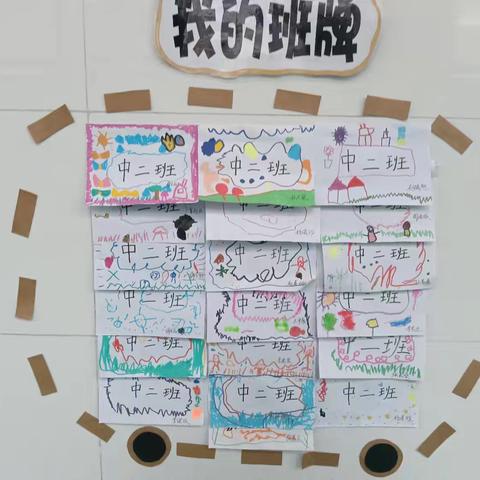 我的班牌
中二班 中二班 中二班
中二班 中二班 中二班
中二班 中二班 中二班
中二班 中二班 中二班
中二班 中二班 中二班